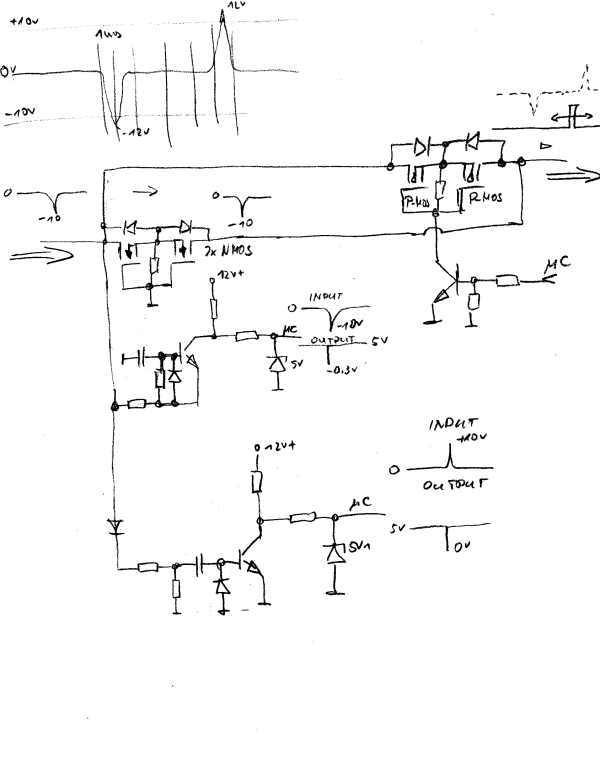 +10V
12V
1ms
0V
-10V
-12V
0
-10
0
-10
P-MOS
P-MOS
2x NMOS
12V+
µC
INPUT
0
-10V
µC
OUTPUT
5V
5V
-0.3V
12V+
INPUT
+10V
0
OUTPUT
µC
5V
5V1
0V